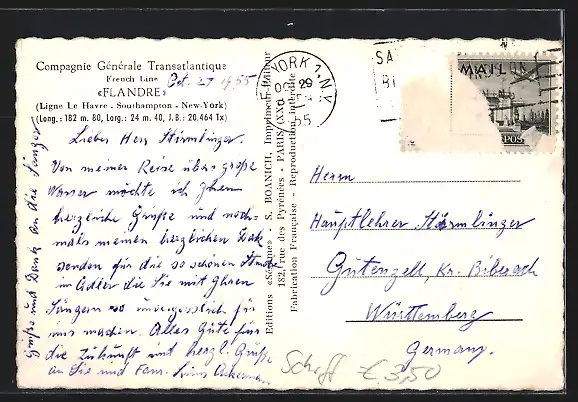 Compagnie Générale Transatlantique
French Line
«FLANDRE»
(Ligne Le Havre - Southampton - New-York)
(Long.: 182 m. 80, Larg.: 24 m. 40, J.B.: 20.464 Tx)
Oct. 27 1955
Lieber Herr Störmlinger.
Von meiner Reise übers große
Wasser möchte ich Ihnen
herzliche Grüße und noch-
mals meinen herzlichen Dank
senden für die so schönen
im Adler die Sie mit Ihren
Sängern so unvergesslich für
uns machten. Alles Gute für
die Zukunft und herzl. Grüße
an Sie und Fam.
Grüße und Dank an die Sänger
Editions - S. BOANICH, Imprimeur-Editeur
182, rue des Pyrénées - PARIS (XX)
Fabrication Française - Reproduction interdite
YORK 1, N.Y.
29
55
SA
MAIL
POS
Herrn
Hauptlehrer Störmlinger
Gutenzell, Kr. Biberach
Württemberg
Germany.
Schiff € 3,50